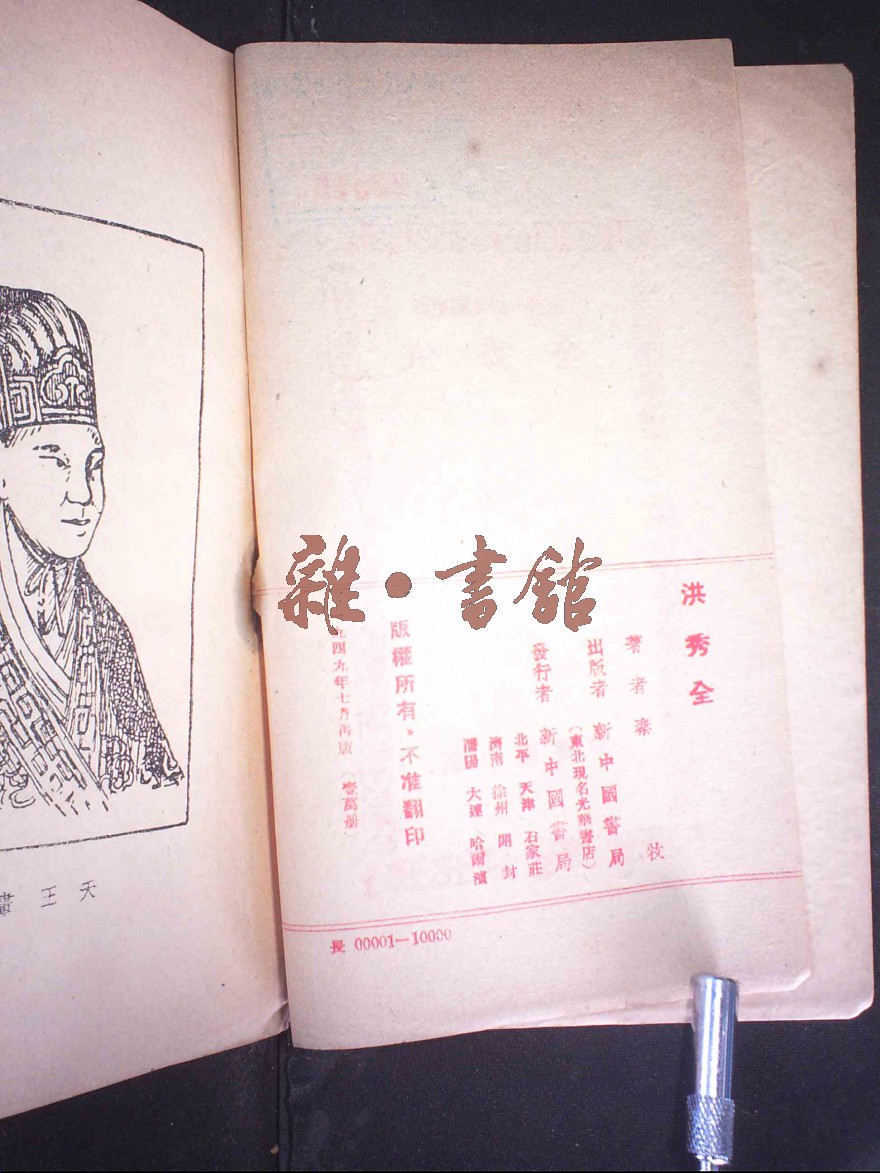 洪秀全
著者 秦牧
出版者 新中國書局
(東北現名光華書店)
發行者 新中國書局
北平 天津 石家莊
濟南 徐州 開封
瀋陽 大連 哈爾濱
版權所有・不准翻印
四九年七月再版 (壹萬册)
長 00001—10000
雜・書館
天王畫